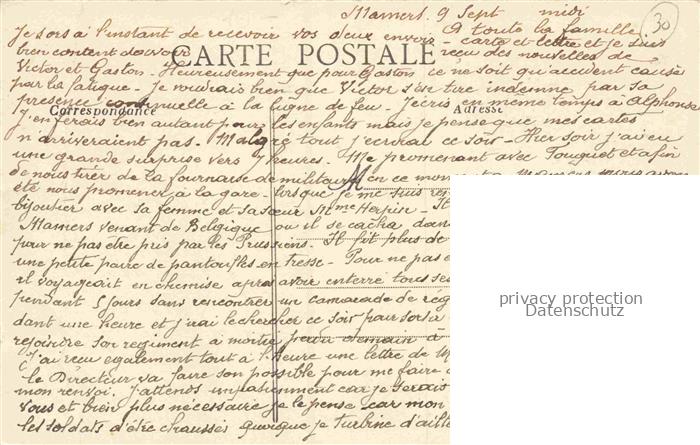 Mamers 9 Sept midi
30
A toute la famille
Je sors à l'instant de recevoir vos deux envois - carte et lettre et je suis
bien content d'avoir reçu des nouvelles de
CARTE POSTALE
Victor et Gaston - Heureusement que pour Gaston ce ne soit qu'accident causé
par la fatigue - Je voudrais bien que Victor s'en tire indemne par sa
présence continuelle à la ligne de feu - J'écris en même temps à Alphonse
Correspondance
Adresse
J'en ferais bien autant pour les enfants mais je pense que mes cartes
n'arriveraient pas - Malgré tout j'écrirai ce soir - Hier soir j'ai eu
une grande surprise vers 7 heures - Me promenant avec Fouquet et afin
de nous tirer de la fournaise de militaires en ce moment à Mamers nous avons
M
été nous promener à la gare - lorsque je me suis
bijoutier avec sa femme et sa sœur Mme Herpin - Il
Mamers venant de Belgique où il se cacha dans
pour ne pas être pris par les Prussiens - Il fit plus de
une petite paire de pantoufles en tresse - Pour ne pas
il voyageait en chemise après avoir enterré tous ses
pendant 5 jours sans rencontrer un camarade de
dant une heure et j'irai le chercher ce soir pour sortir
rejoindre son régiment à demain à
J'ai reçu également tout à l'heure une lettre de M
le Directeur va faire son possible pour me faire
mon renvoi. J'attends impatiemment car je serais
vous et bien plus nécessaire je le pense car mon
les soldats d'être chaussés quoique je turbine d'aille
privacy protection
Datenschutz